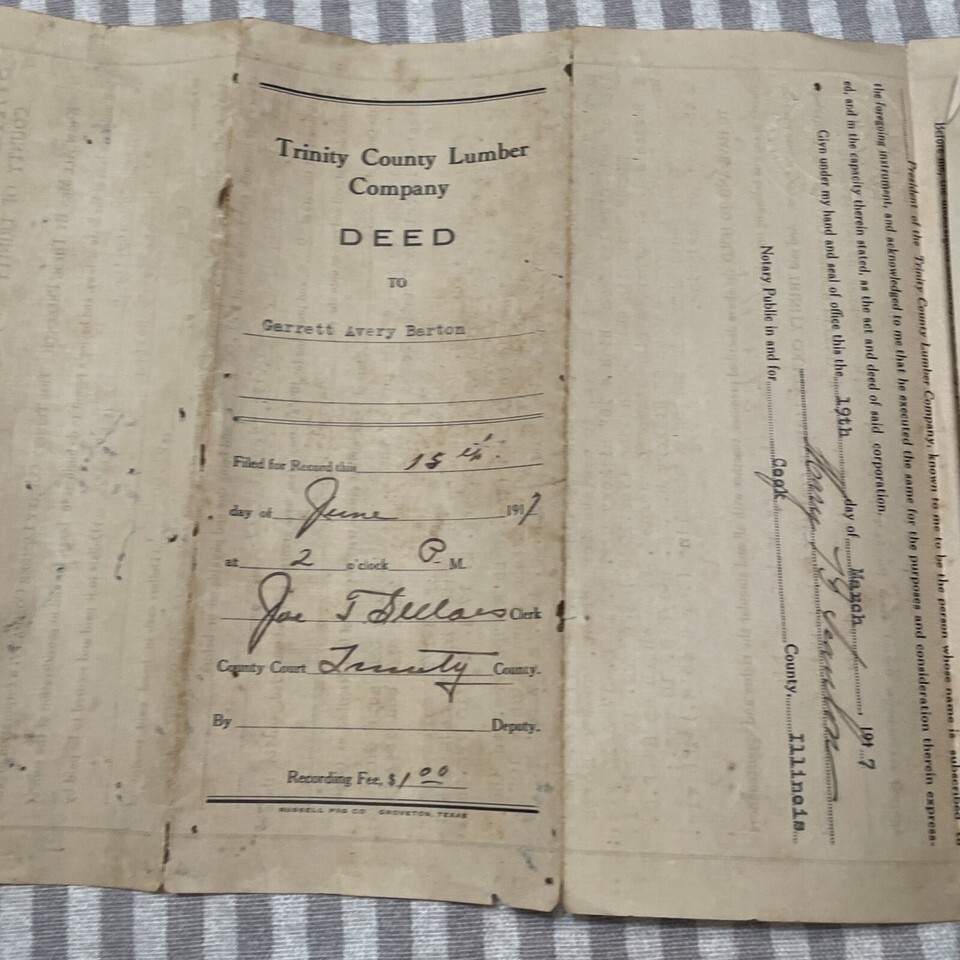 Trinity County Lumber
Company
DEED
TO
Garrett Avery Barton
Filed for Record this 15th.
day of June 1917
at 2 o'clock P. M.
Joe T Clerk
County Court Trinity County.
By Deputy.
Recording Fee, $1.00
RUSSELL PTG CO GROVETON, TEXAS
Before me, the
President of the Trinity County Lumber Company, known to me to be the person whose name is subscribed to
the foregoing instrument, and acknowledged to me that he executed the same for the purposes and consideration therein express-
ed, and in the capacity therein stated, as the act and deed of said corporation.
Givn under my hand and seal of office this the 19th day of March, 1917
Notary Public in and for Cook County, Illinois.